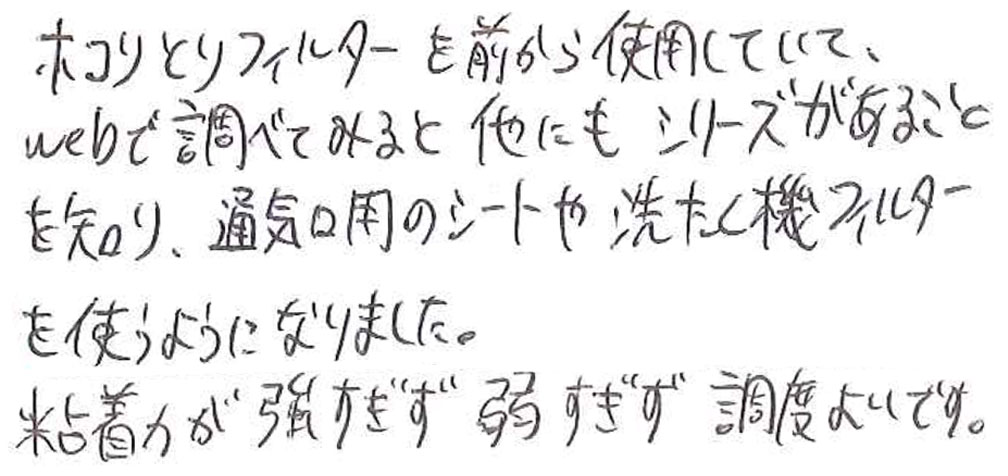 ホコリとりフィルターを前から使用していて、
webで調べてみると他にもシリーズがあること
を知り、通気口用のシートや洗たく機フィルター
を使うようになりました。
粘着力が強すぎず弱すぎず調度よいです。